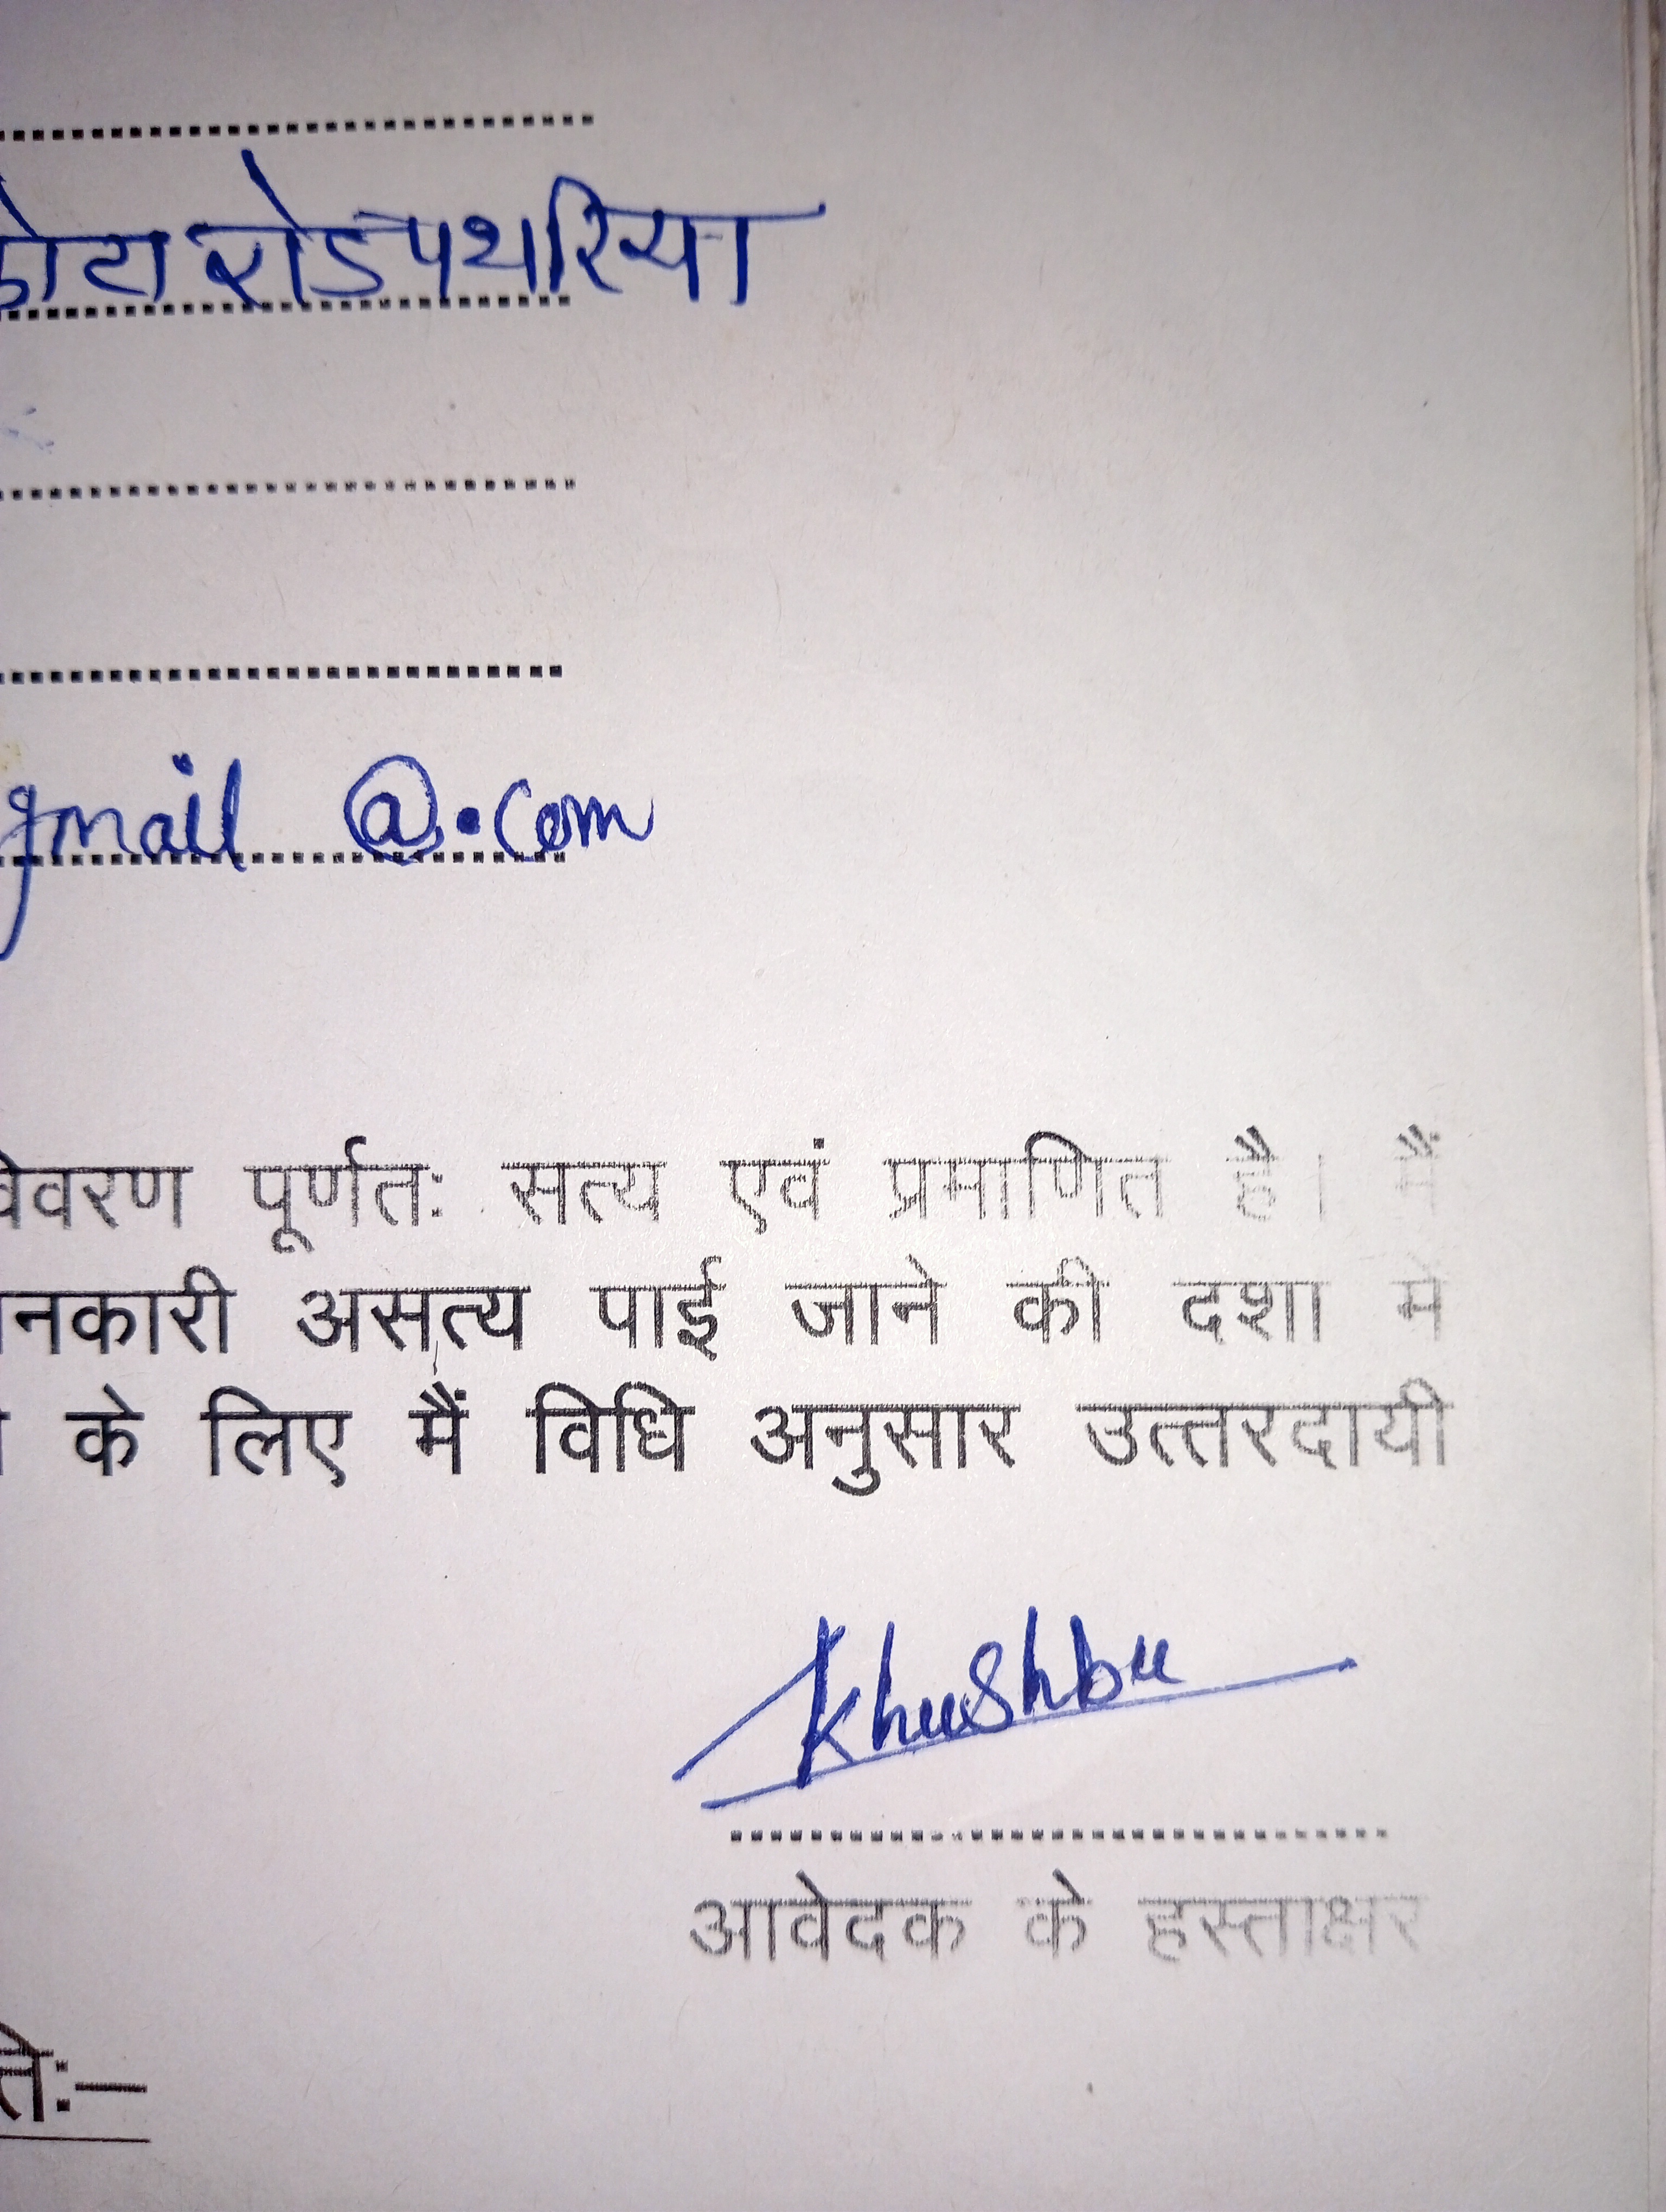 कोटा रोड पथरिया
gmail @.com
विवरण पूर्णतः सत्य एवं प्रमाणित है। मैं
नकारी असत्य पाई जाने की दशा में
के लिए मैं विधि अनुसार उत्तरदायी
Khushbu
आवेदक के हस्ताक्षर